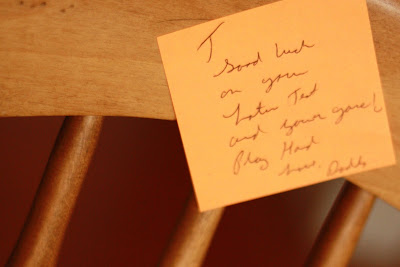 T
Good luck
on you
Latin Test
and your game!
Play Hard
Love, Daddy